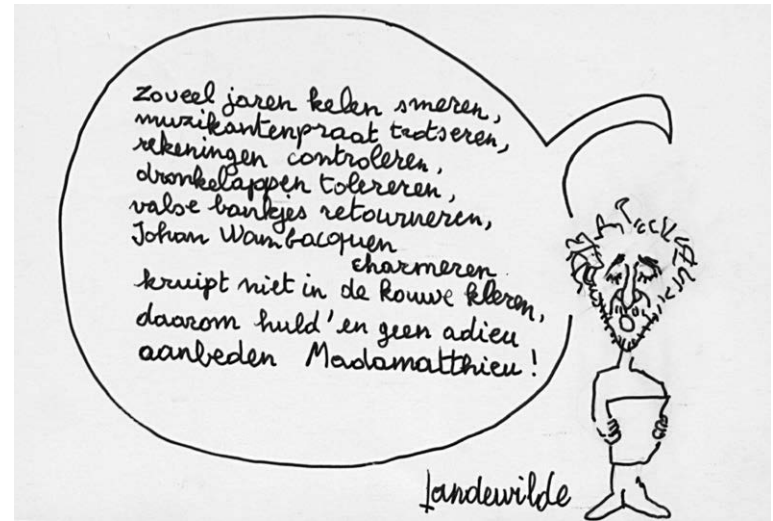 Zoveel jaren kelen smeren,
muzikantenpraat trotseren,
rekeningen controleren,
dronkelappen tolereren,
valse bankjes retourneren,
Johan Wambacquen
charmeren
kruipt niet in de kouwe kleren,
daarom huld' en geen adieu
aanbeden Madamatthieu!
Jandewilde